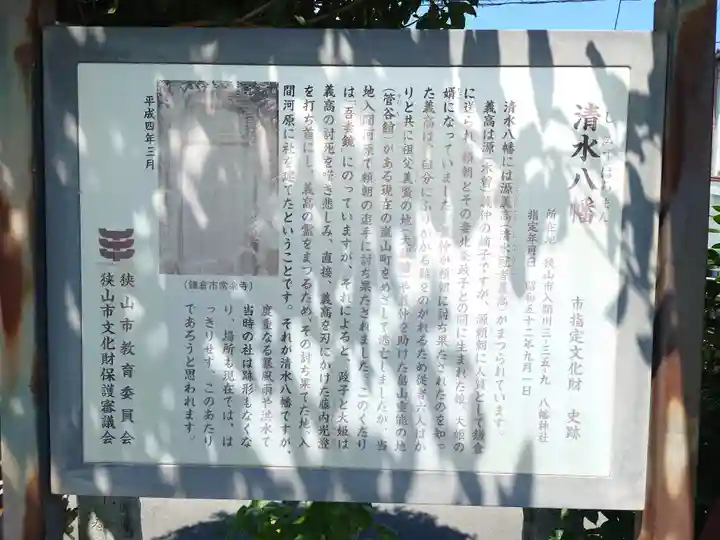 しみずはちまん
清水八幡
市指定文化財 史跡
所在地 狭山市入間川三-三五-九 八幡神社
指定年月日 昭和五十二年九月一日
清水八幡には源義高(清水冠者義高)がまつられています。
義高は源(木曽)義仲の嫡子ですが、源頼朝に人質として鎌倉
に送られ、頼朝とその妻北条政子との間に生まれた娘、大姫の
婿になっていました。義仲が頼朝に討ち果たされたのを知っ
た義高は、自分にふりかかる難をのがれるため従者六人ばか
りと共に祖父義賢の地(大蔵館)や義仲を助けた畠山重能の地
(菅谷館)がある現在の嵐山町をめざして逃亡しましたが、当
地入間河原で頼朝の追手に討ち果たされました。このくだり
は「吾妻鏡」にのっていますが、それによると、政子と大姫は
義高の討死を嘆き悲しみ、直接、義高を刃にかけた藤内光澄
を打ち首にし、義高の霊をまつるため、その討ち果てた地、入
間河原に社を建てたということです。それが清水八幡ですが、
度重なる暴風雨や洪水で
当時の社は跡形もなくな
り、場所も現在では、は
っきりせず、このあたり
であろうと思われます。
(鎌倉市常楽寺)
平成四年三月
狭山市教育委員会
狭山市文化財保護審議会